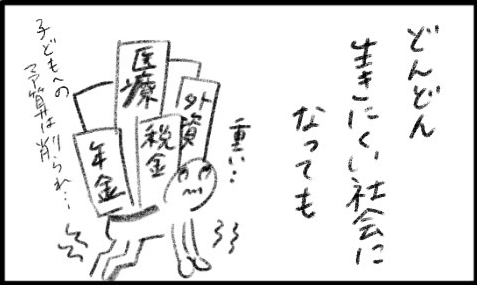 どんどん
生きにくい社会に
なっても
重い…
外資
医療
税金
年金
子どもへの
予算は削られ…